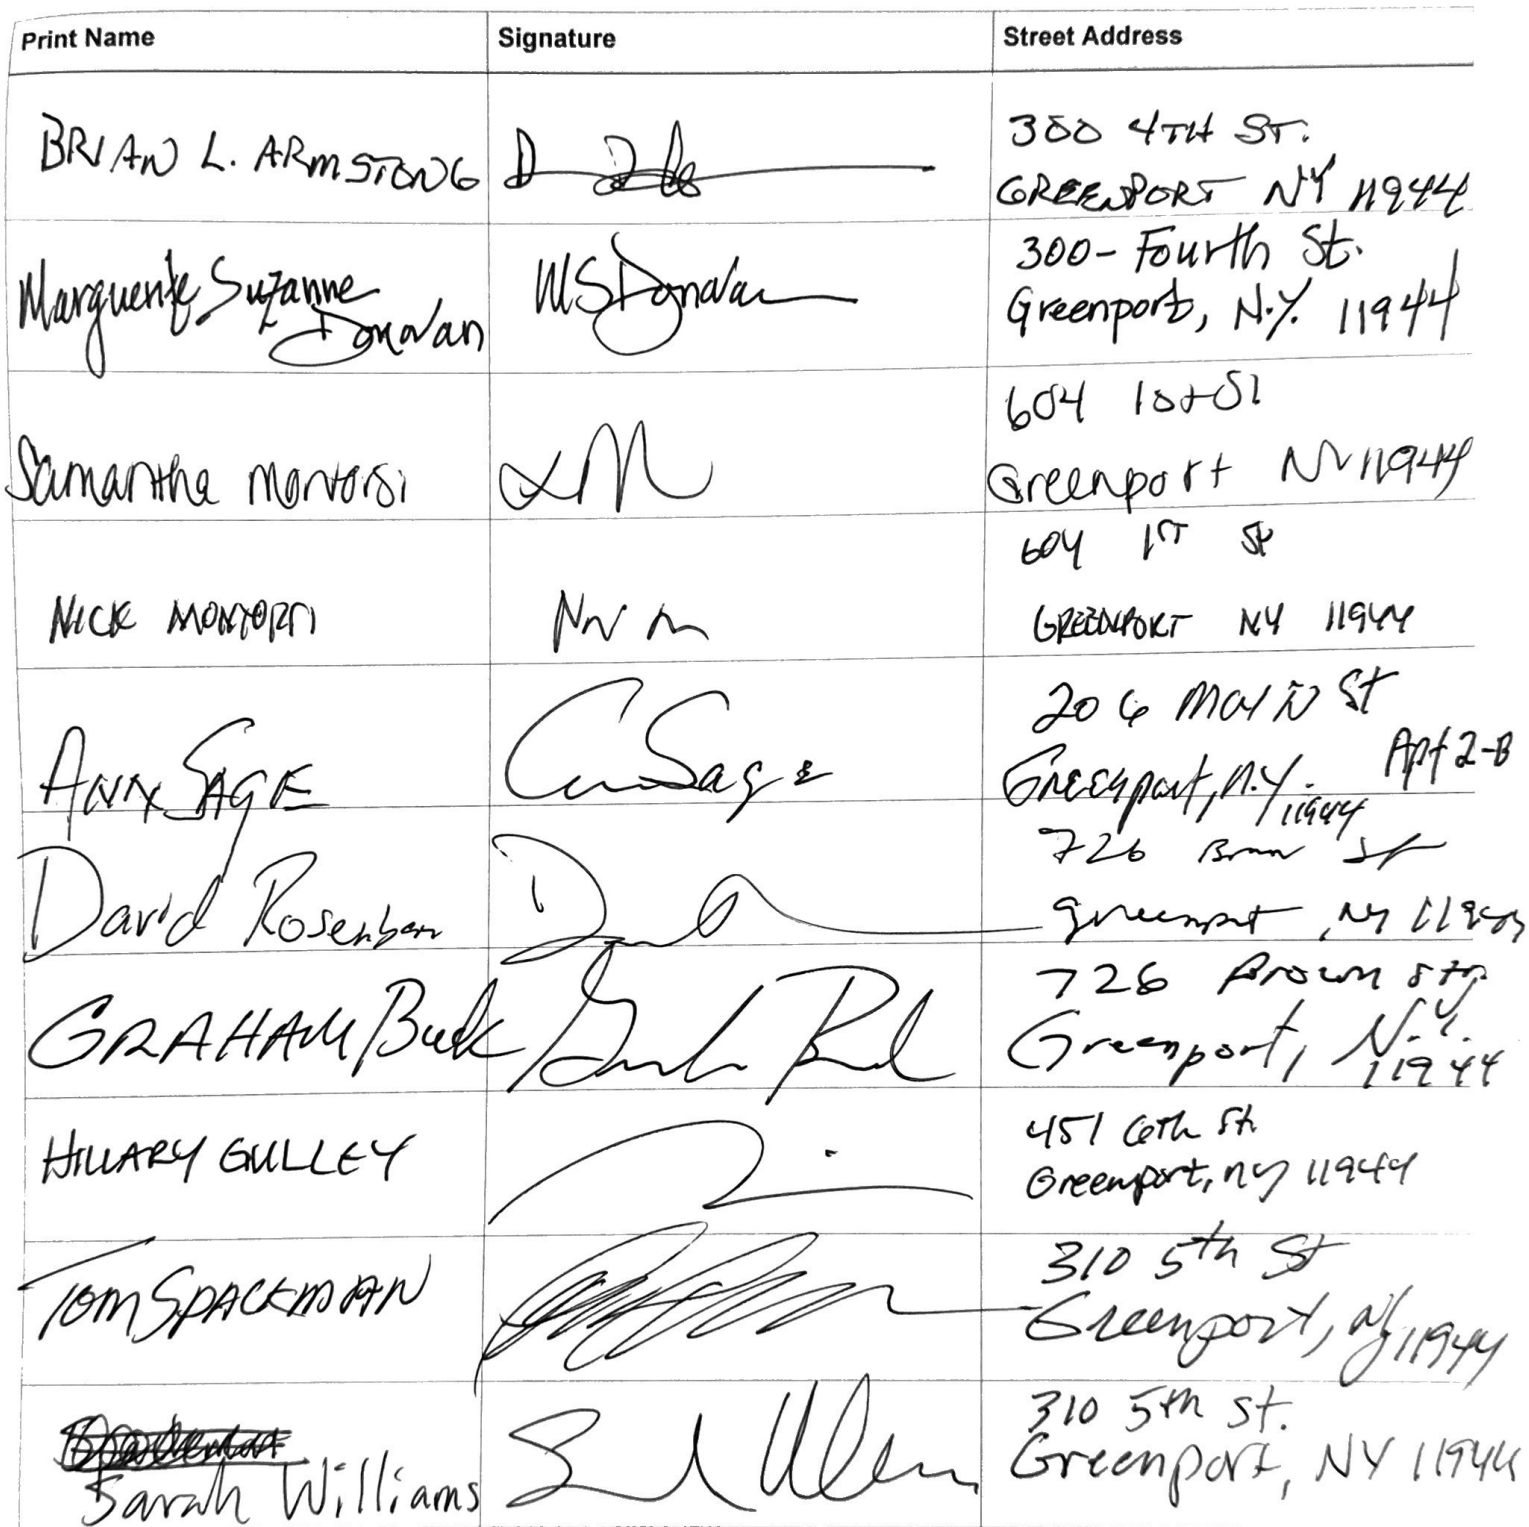 Print Name Signature Street Address
BRIAN L. ARMSTONG
300 4TH ST.
GREENPORT NY 11944
Marguerite Suzanne
Donovan
MSDonovan
300- Fourth St.
Greenport, N.Y. 11944
Samantha Montorsi
SM
604 1st St
Greenport NY 11944
NICK MONTORSI
604 1ST St
GREENPORT NY 11944
ANN SAGE
Ann Sage
206 MAIN St
Apt 2-B
Greenport, N.Y. 11944
David
726 St
Greenport, NY 11944
GRAHAM Buck
726 Brown St
Greenport, N.Y.
11944
HILLARY GULLEY
451 6th St.
Greenport, NY 11944
TOM SPACKMAN
310 5th St
Greenport, NY 11944
Sarah Williams
310 5th St.
Greenport, NY 11944